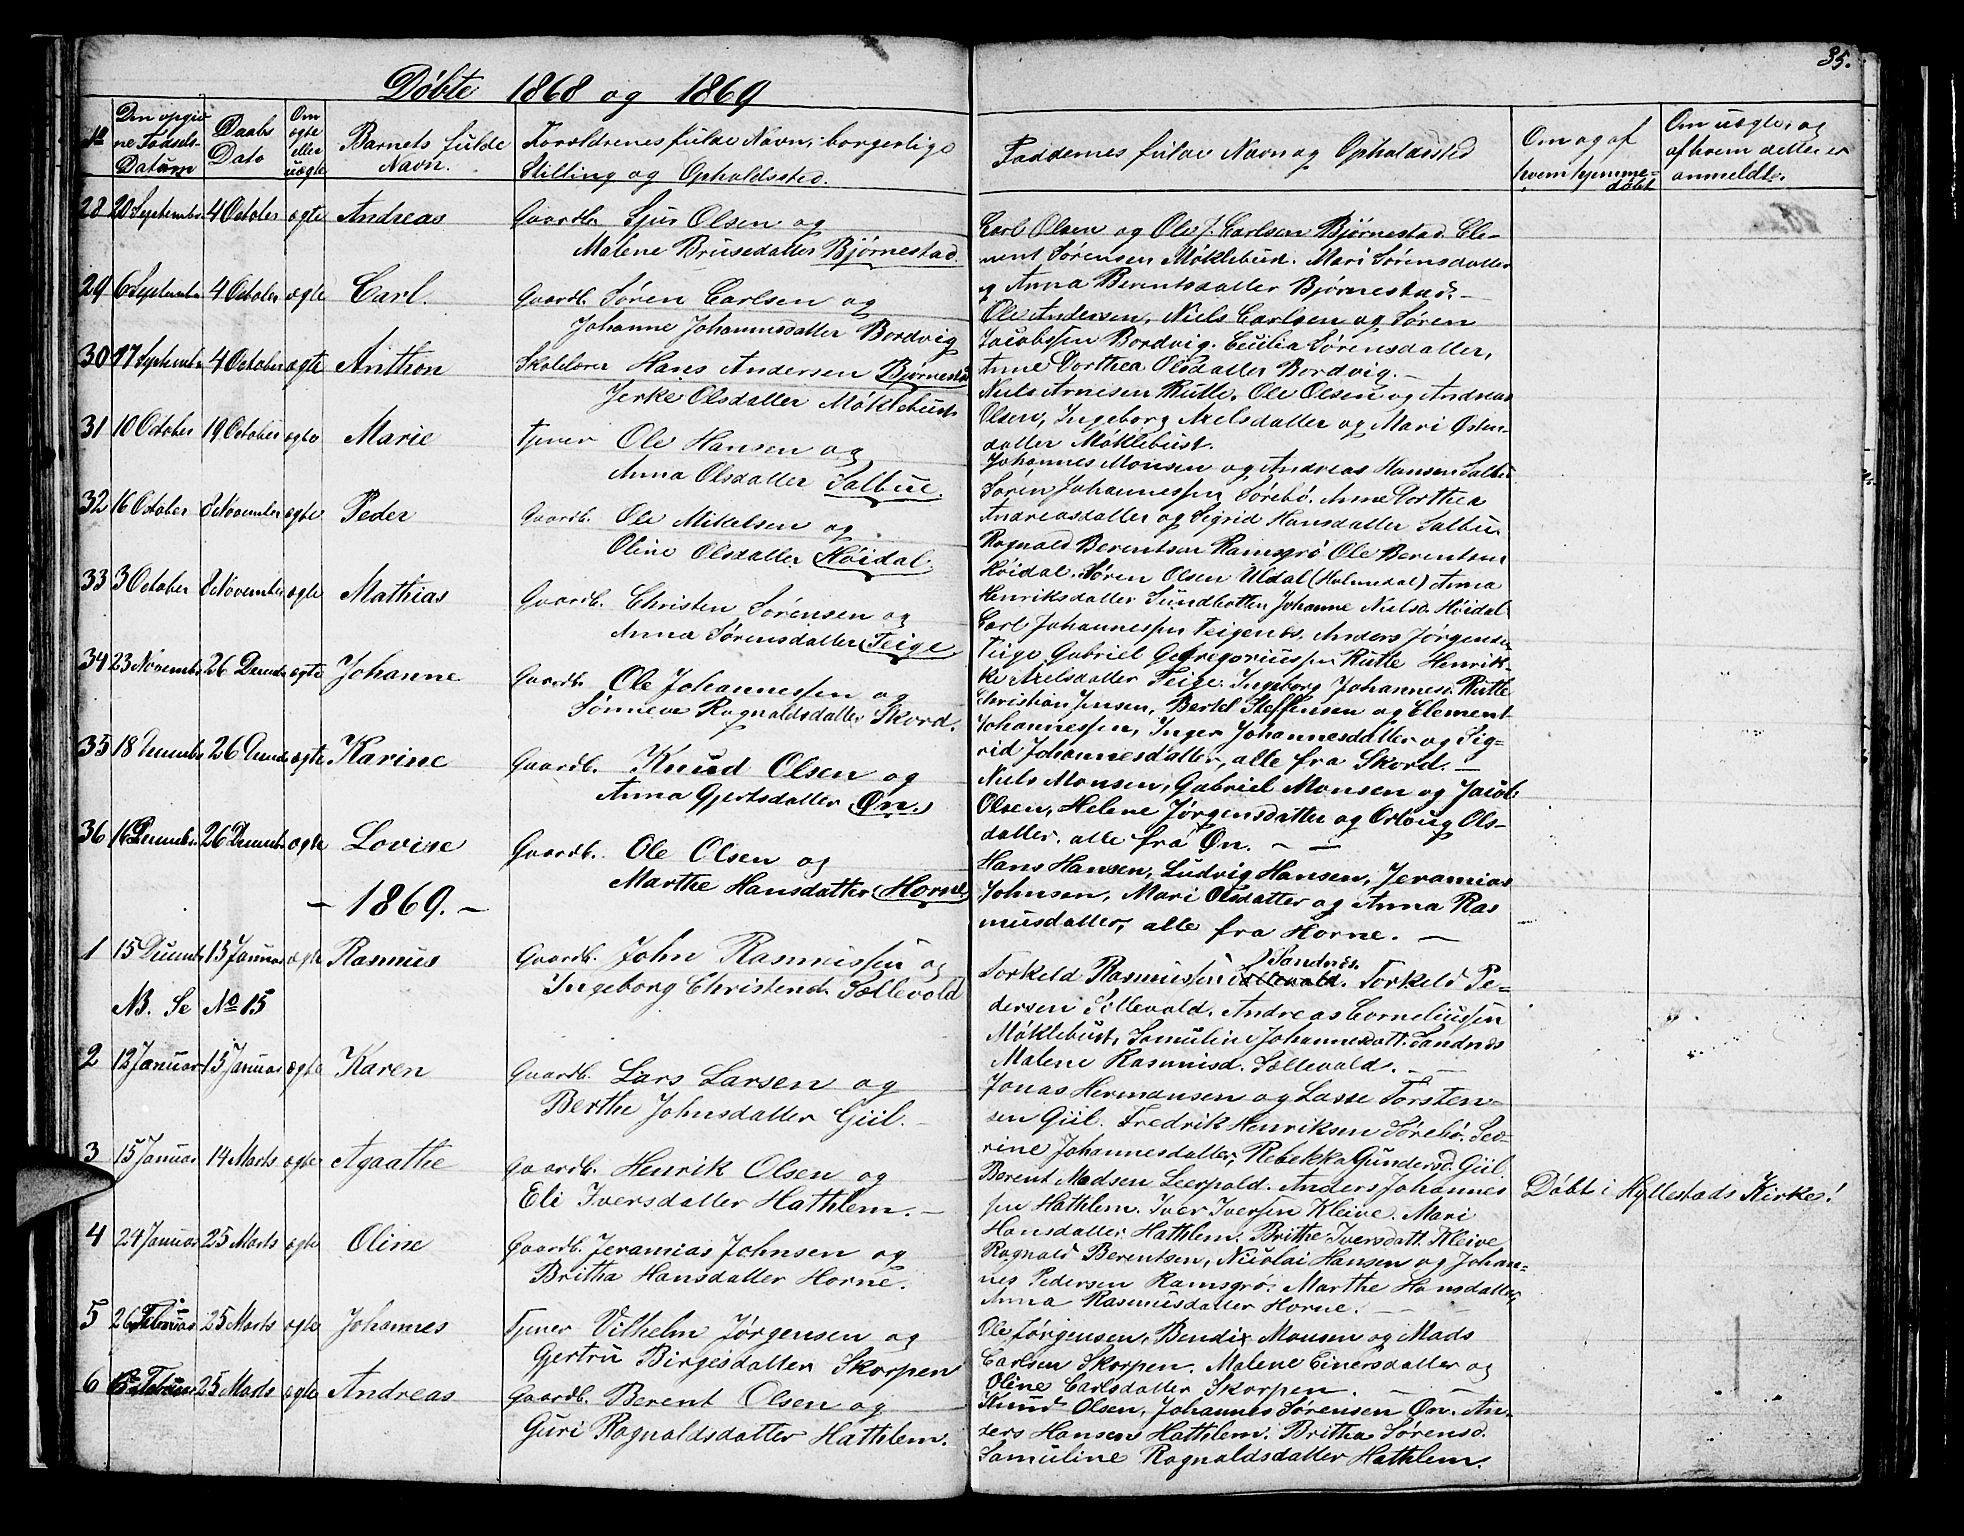 35.
Døbte 1868 og 1869
No
Den opgiv
ne Fødsels-
Datum
Daabs
Dato
Om
ægte
eller
uægte
Barnets fulde
Navn.
Forældrenes fulde Navn, borgerlige
Stilling og Opholdssted.
Faddernes fulde Navn og Opholdssted
Om og af
hvem hjemme-
døbt
Om uægte, og
af hvem dette er
anmeldt.
28 20 Septembr 4 October ægte Andreas Gaardb. Sjur Olsen og
Malene Brusedatter Bjørnestad.
Carl Olsen og Ole J. Carlsen Bjørnestad. Cle-
ment Sørensen Møklebust. Mari Sørensdatter
og Anna Berentsdatter Bjørnestad. —
29 6 Septembr 4 October ægte Carl. Gaardb. Søren Carlsen og
Johanne Johannesdatter Bordvig
Ole Andersen, Niels Carlsen og Søren
Jacobssen Bordvig. Cecilia Sørensdatter,
Anne Dorthea Olsdatter Bordvig. —
30 17 Septembr 4 October ægte Anthon Skolelærer Hans Andersen Bjørnestad
Jerke Olsdatter Møklebust
Niels Arnesen Rutle, Ole Olsen og Andreas
Olsen, Ingeborg Axelsdatter og Mari Østen-
datter Møklebust.
31 10 October 19 October ægte Marie Tjener Ole Hansen og
Anna Olsdatter Salbue.
Johannes Monsen og Andreas Hansen Salbu
Søren Johannessen Sørebø. Anne Dorthea
Andreasdatter og Sigrid Hansdatter Salbu
32 16 October 8 November ægte Peder Gaardb. Ole Mikelsen og
Oline Olsdatter Høidal.
Rognald Berentsen Ramsgrø Ole Berentsen
Høidal. Søren Olsen Uldal (Holmedal) Anna
Henriksdatter Sundbotten, Johanne Nielsd. Høidal
33 3 October 8 November ægte Mathias Gaardb. Christen Sørensen og
Anna Sørensdatter Teige
Carl Johannessen Teigenes. Anders Jørgensen
Teige Gabriel Gregoriussen Rutle Henrik-
ke Axelsdatter Teige. Ingeborg Johannesd. Rutle
34 23 Novembr 26 Decemb ægte Johanne Gaardb. Ole Johannessen og
Sønneve Rognaldsdatter Skord.
Christian Jensen, Bertel Steffensen og Clement
Johannessen, Inger Johannesdatter og Sig-
rid Johannesdatter, alle fra Skord. —
35 18 Decembr 26 Decemb ægte Karine Gaardb. Knud Olsen og
Anna Gjertsdatter Øn.
Niels Monsen, Gabriel Monsen og Jacob
Olsen, Helene Jørgensdatter og Orloug Ols-
datter. alle fra Øn. —
36 16 Decembr 26 Decembr ægte Lovise Gaardb. Ole Olsen og
Marthe Hansdatter Horne
Hans Hansen, Ludvig Hansen, Jeramias
Johnsen, Mari Olsdatter og Anna Ras
musdatter, alle fra Horne. —
— 1869. —
1 15 Decemb 13 Januar ægte Rasmus Gaardb. John Rasmussen og
Ingeborg Christend. Sællevold
NB. Se No 15
Sandnes.
Torkeld Rasmussen Sællevold. Torkeld Pe-
dersen Sellevold. Andreas Corneliussen
Møklebust, Samuline Johannesdatt. Sandnes
Malene Rasmusd. Sællevold. —
2 12 Januar 15 Januar ægte Karen Gaardb. Lars Larsen og
Berthe Johnsdatter Giil. —
Jonas Hermansen og Lasse Torsten-
sen Giil. Fredrik Henriksen Sørebø. Sev-
rine Johannesdatter, Rebekka Gundersd. Giil
3 15 Januar 14 Marts ægte Agaathe Gaardb. Henrik Olsen og
Eli Iversdatter Hathlem. —
Berent Madsen Leerpold. Anders Johannes
sen Hathlem. Iver Iversen Kleive. Mari
Hansdatter Hathlem. Brithe Iversdatt. Kleive
Døbt i Hyllestads Kirke!
4 24 Januar 25 Marts ægte Oline Gaardb. Jeramias Johnsen og
Britha Hansdatter Horne.
Rognald Berentsen, Nicolai Hansen og Johan-
nes Pedersen Ramsgrø. Marthe Hansdatter,
Anna Rasmusdatter Horne. —
5 26 Februar 25 Marts ægte Johannes Tjener Vilhelm Jørgensen og
Gertru Birgesdatter Skorpen
Ole Jørgensen, Bendix Monsen og Mads
Carlsen Skorpen. Malene Einersdatter og
Oline Carlsdatter Skorpen. —
6 Februar 25 Marts ægte Andreas Gaardb. Berent Olsen og
Guri Rognaldsdatter Hathlem.
Knud Olsen, Johannes Sørensen Øn. An-
ders Hansen Hathlem. Britha Sørensd.
Samuline Rognaldsdatter Hathlem.